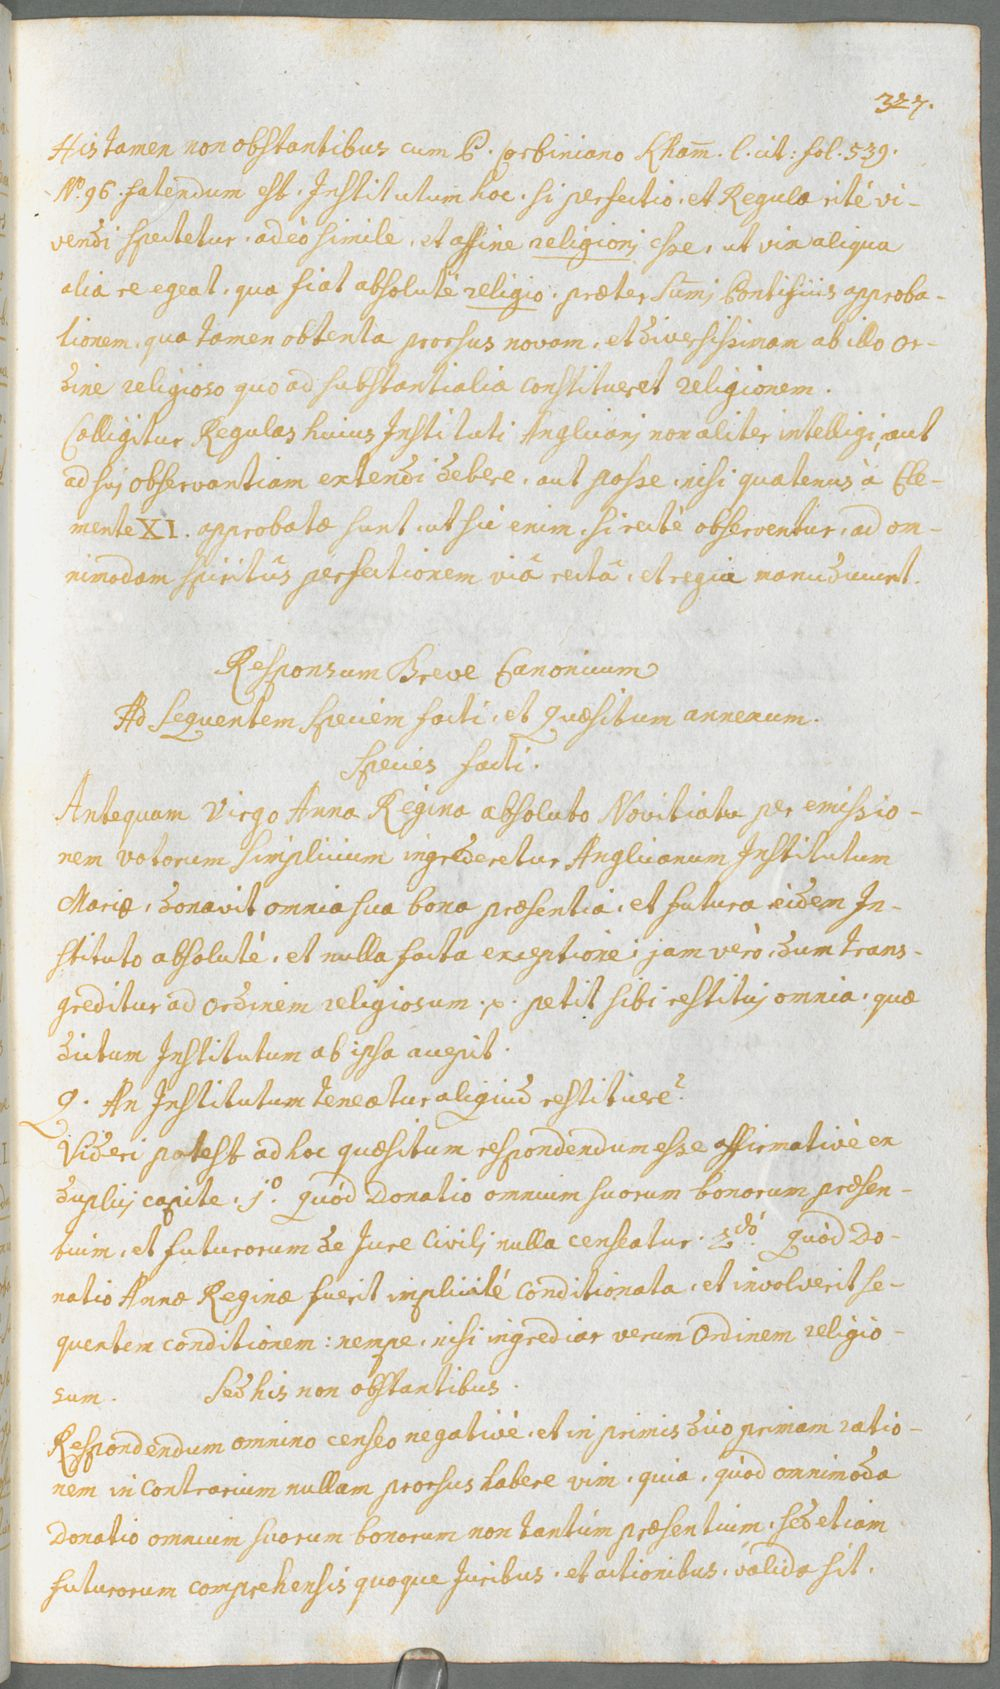 327.
His tamen non obstantibus cum P. Corbiniano Kham̄. l. cit: fol. 539.
N.º 96. fatendum est, Institutum hoc, si perfectio, et Regula rité vi-
vendi spectetur, adeò simile, et affine religionj esse, ut vix aliqua
alia re egeat, qua fiat absoluté religio, præter Sum̄j Pontificis approba-
tionem, qua tamen obtenta prorsus novam, et diversissimam ab illo or-
dine religioso quo ad substantialia constitueret religionem.
Colligitur Regulas huius Instituti Anglicanj non aliter intelligi, aut
ad suj observantiam extendi debere, aut posse, nisi quatenus à Cle-
mente XI. approbatæ sunt, ut sic enim, si recté observentur, ad om-
nimodam spiritûs perfectionem viâ rectâ, et regia manuducunt.
Responsum Breve Canonicum
Ad Sequentem Speciem facti, et quæsitum annexum.
Species facti.
Antequam Virgo Anna Regina absoluto Novitiatu per emissio-
nem votorum simplicium ingrederetur Anglicanum Institutum
Mariæ, donavit omnia sua bona præsentia, et futura eidem In-
stituto absoluté, et nulla facta exceptione; jam veró, dum trans-
greditur ad Ordinem religiosum .x. petit sibi restituj omnia, quæ
dictum Institutum ab ipsa accepit.
Q. An Institutum teneatur aliquid restituere?
Videri potest ad hoc quæsitum respondendum esse affirmativè ex
duplicj capite, 1º. quód Donatio omnium suorum bonorum præsen-
tium, et futurorum de Jure Civilj nulla censeatur. 2dó. quòd Do-
natio Annæ Reginæ fuerit implicité conditionata, et involverit se-
quentem conditionem: nempe, nisi ingrediar verum Ordinem religio-
sum. Sed his non obstantibus.
Respondendum omnino censeo negativè, et in primis dico primam ratio-
nem in contrarium nullam prorsus habere vim, quia, quòd omnimoda
Donatio omnium suorum bonorum non tantúm præsentium, sed etiam
futurorum comprehensis quoque Juribus, et actionibus, valida sit,